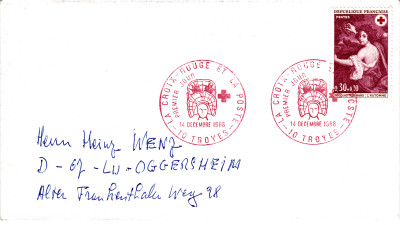 REPUBLIQUE FRANÇAISE
POSTES
0.30+0.10
LA CROIX-ROUGE ET LA POSTE
PREMIER JOUR
14 DECEMBRE 1968
10 TROYES
LA CROIX-ROUGE ET LA POSTE
PREMIER JOUR
14 DECEMBRE 1968
10 TROYES
Herrn Heinz WENZ
D - 67 - LU - OGGERSHEIM
Alter Frankenthaler Weg 98